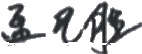 孟凡胜